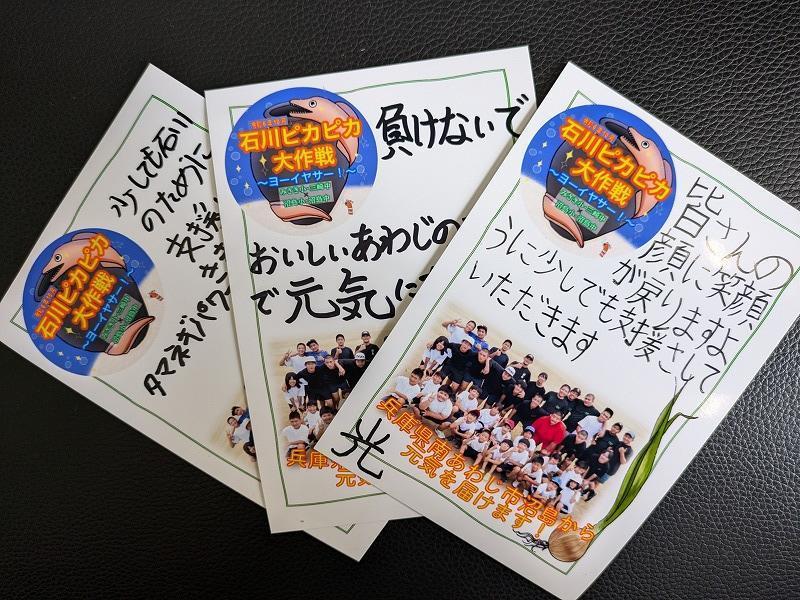 少しでも石川
のために
支援
タマネギパワー
石川ピカピカ
大作戦
～ヨーイヤサー！～
石川ピカピカ
大作戦
～ヨーイヤサー！～
みさき小・三崎中
×
沼島小・沼島中
負けないで
おいしいあわじの
で元気に
兵庫
元気
石川ピカピカ
大作戦
～ヨーイヤサー！～
みさき小・三崎中
×
沼島小・沼島中
皆さんの
顔に笑顔
が戻りますよ
うに少しでも支援させて
いただきます
光
兵庫県南あわじ市沼島から
元気を届けます！